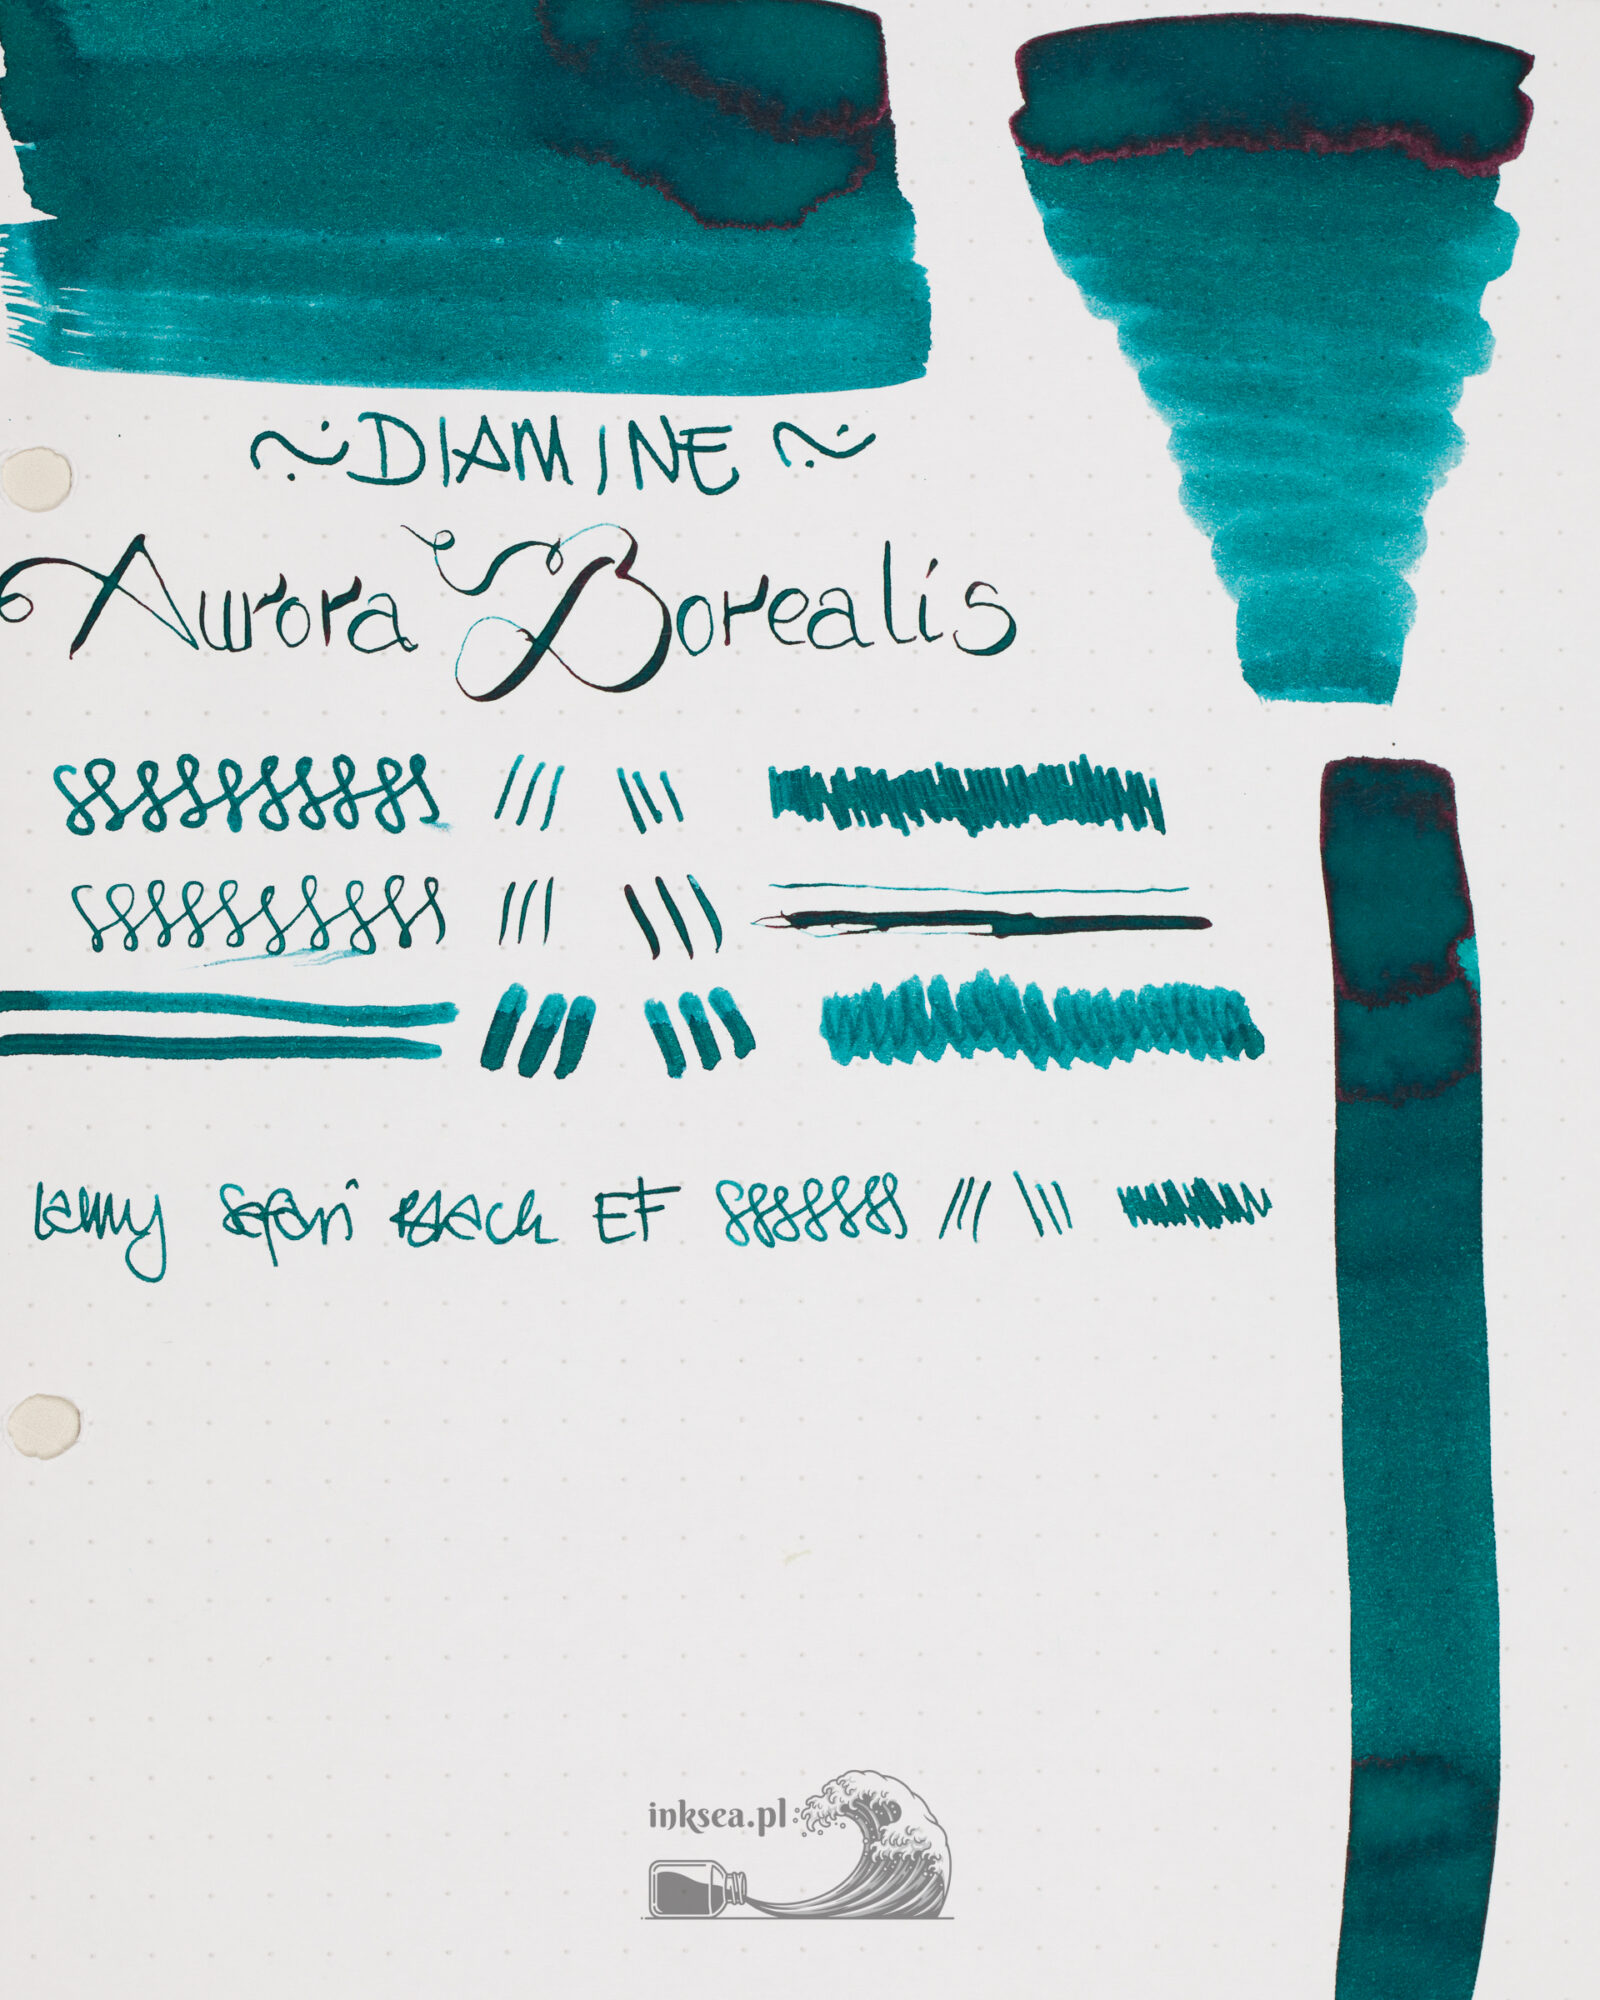 ~DIAMINE~
Aurora Borealis
Lamy Safari Black EF
inksea.pl